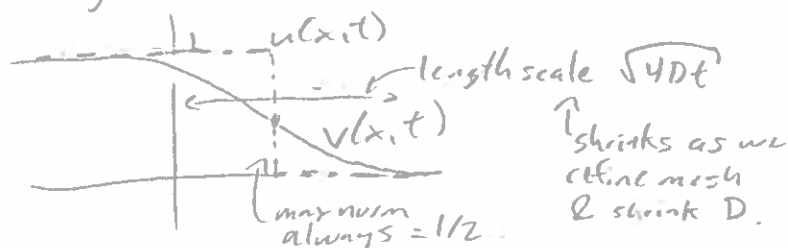 1
u(x,t)
length scale √4Dt
v(x,t)
shrinks as we
refine mesh
& shrink D.
max norm
always = 1/2